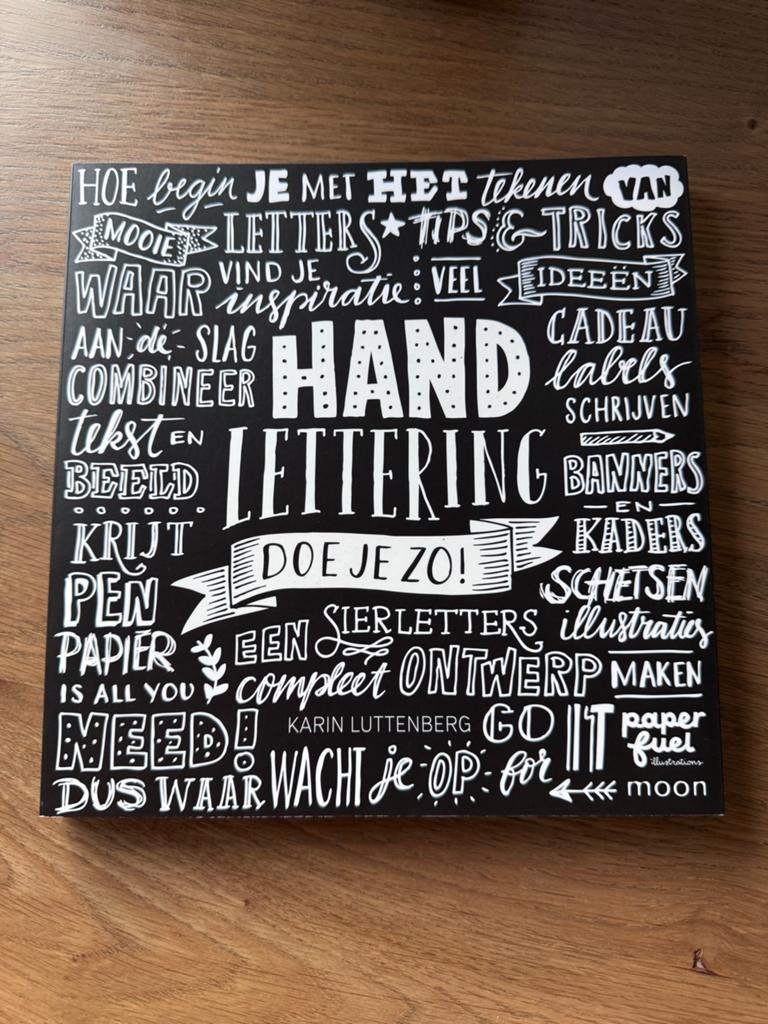 HOE begin JE MET HET tekenen VAN
MOOIE LETTERS TIPS & TRICKS
WAAR VIND JE inspiratie : VEEL IDEEËN
AAN de SLAG
COMBINEER
tekst EN
BEELD
KRIJT
PEN
PAPIER
IS ALL YOU
NEED!
HAND
LETTERING
DOE JE ZO!
CADEAU
labels
SCHRIJVEN
BANNERS
EN
KADERS
SCHETSEN
illustraties
EEN SIERLETTERS
compleet ONTWERP MAKEN
KARIN LUTTENBERG
GO FOR IT
paper
fuel
illustrations
DUS WAAR WACHT je OP for
moon